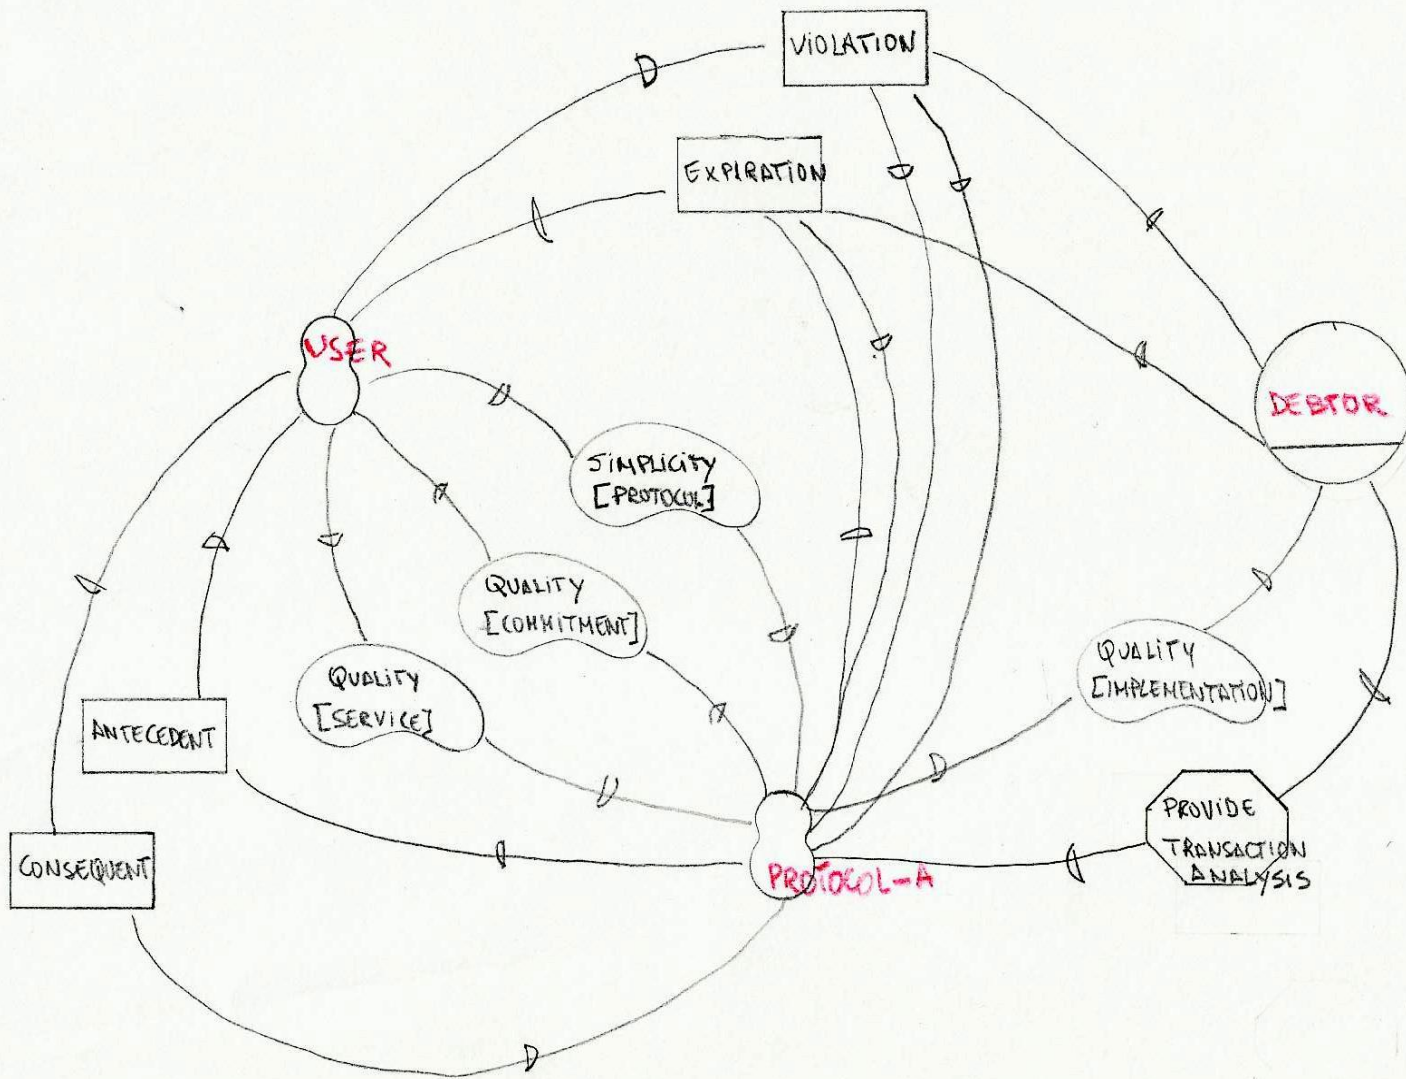 VIOLATION
EXPIRATION
USER
DEBTOR
SIMPLICITY
[PROTOCOL]
QUALITY
[COMMITMENT]
QUALITY
[SERVICE]
QUALITY
[IMPLEMENTATION]
ANTECEDENT
CONSEQUENT
PROVIDE
TRANSACTION
ANALYSIS
PROTOCOL-A